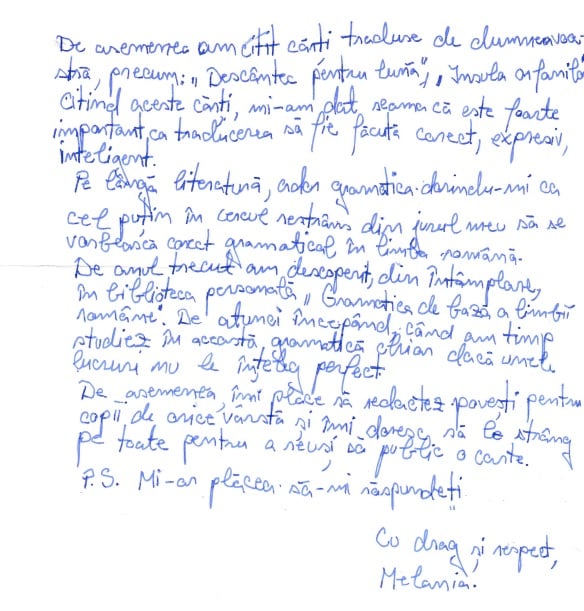 De asemenea am citit cărți traduse de dumneavoa-
stră, precum: „Descântec pentru lună", „Insula orfanilor
Citind aceste cărti, mi-am dat seama că este foarte
important ca traducerea să fie făcută corect, expresiv,
inteligent.
Pe lângă literatură, ador gramatica dorindu-mi ca
cel puțin în cercul restrâns din jurul meu să se
vorbească corect gramatical în limba română.
De anul trecut am descoperit, din întâmplare,
în biblioteca personală „Gramatica de bază a limbii
române". De atunci începând, când am timp
studiez în această gramatică chiar dacă unele
lucruri nu le înțeleg perfect.
De asemenea, îmi place să redactez povești pentru
copii de orice vârstă și îmi doresc să le strâng
pe toate pentru a reuși să public o carte.
P.S. Mi-ar plăcea să-mi răspundeți.
Cu drag și respect,
Melania.